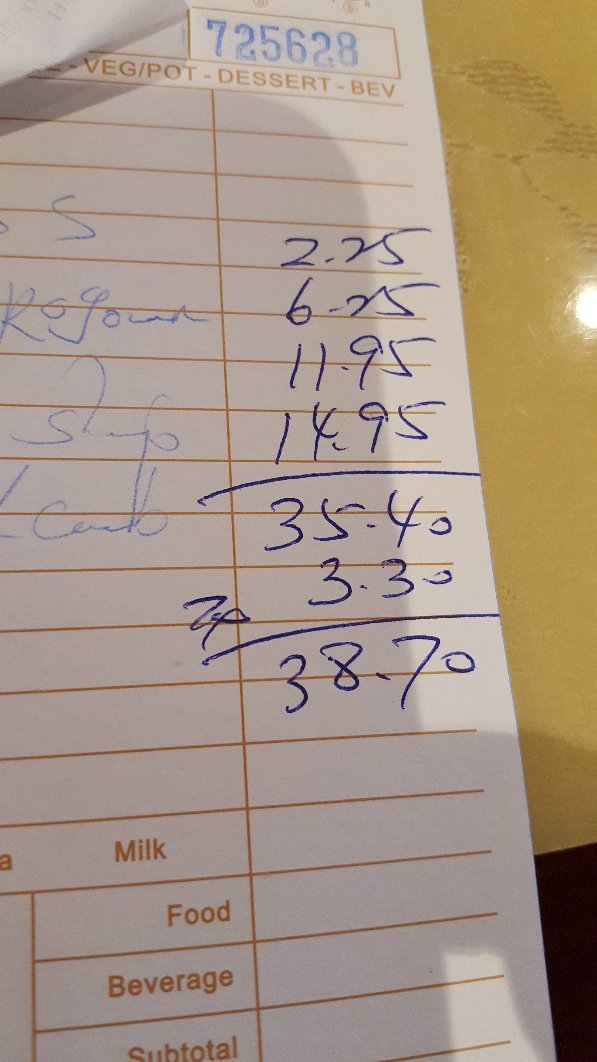 725628
- VEG/POT - DESSERT - BEV
S 2.25
6.25
11.95
14.95
35.40
3.30
38.70
Milk
Food
Beverage
Subtotal